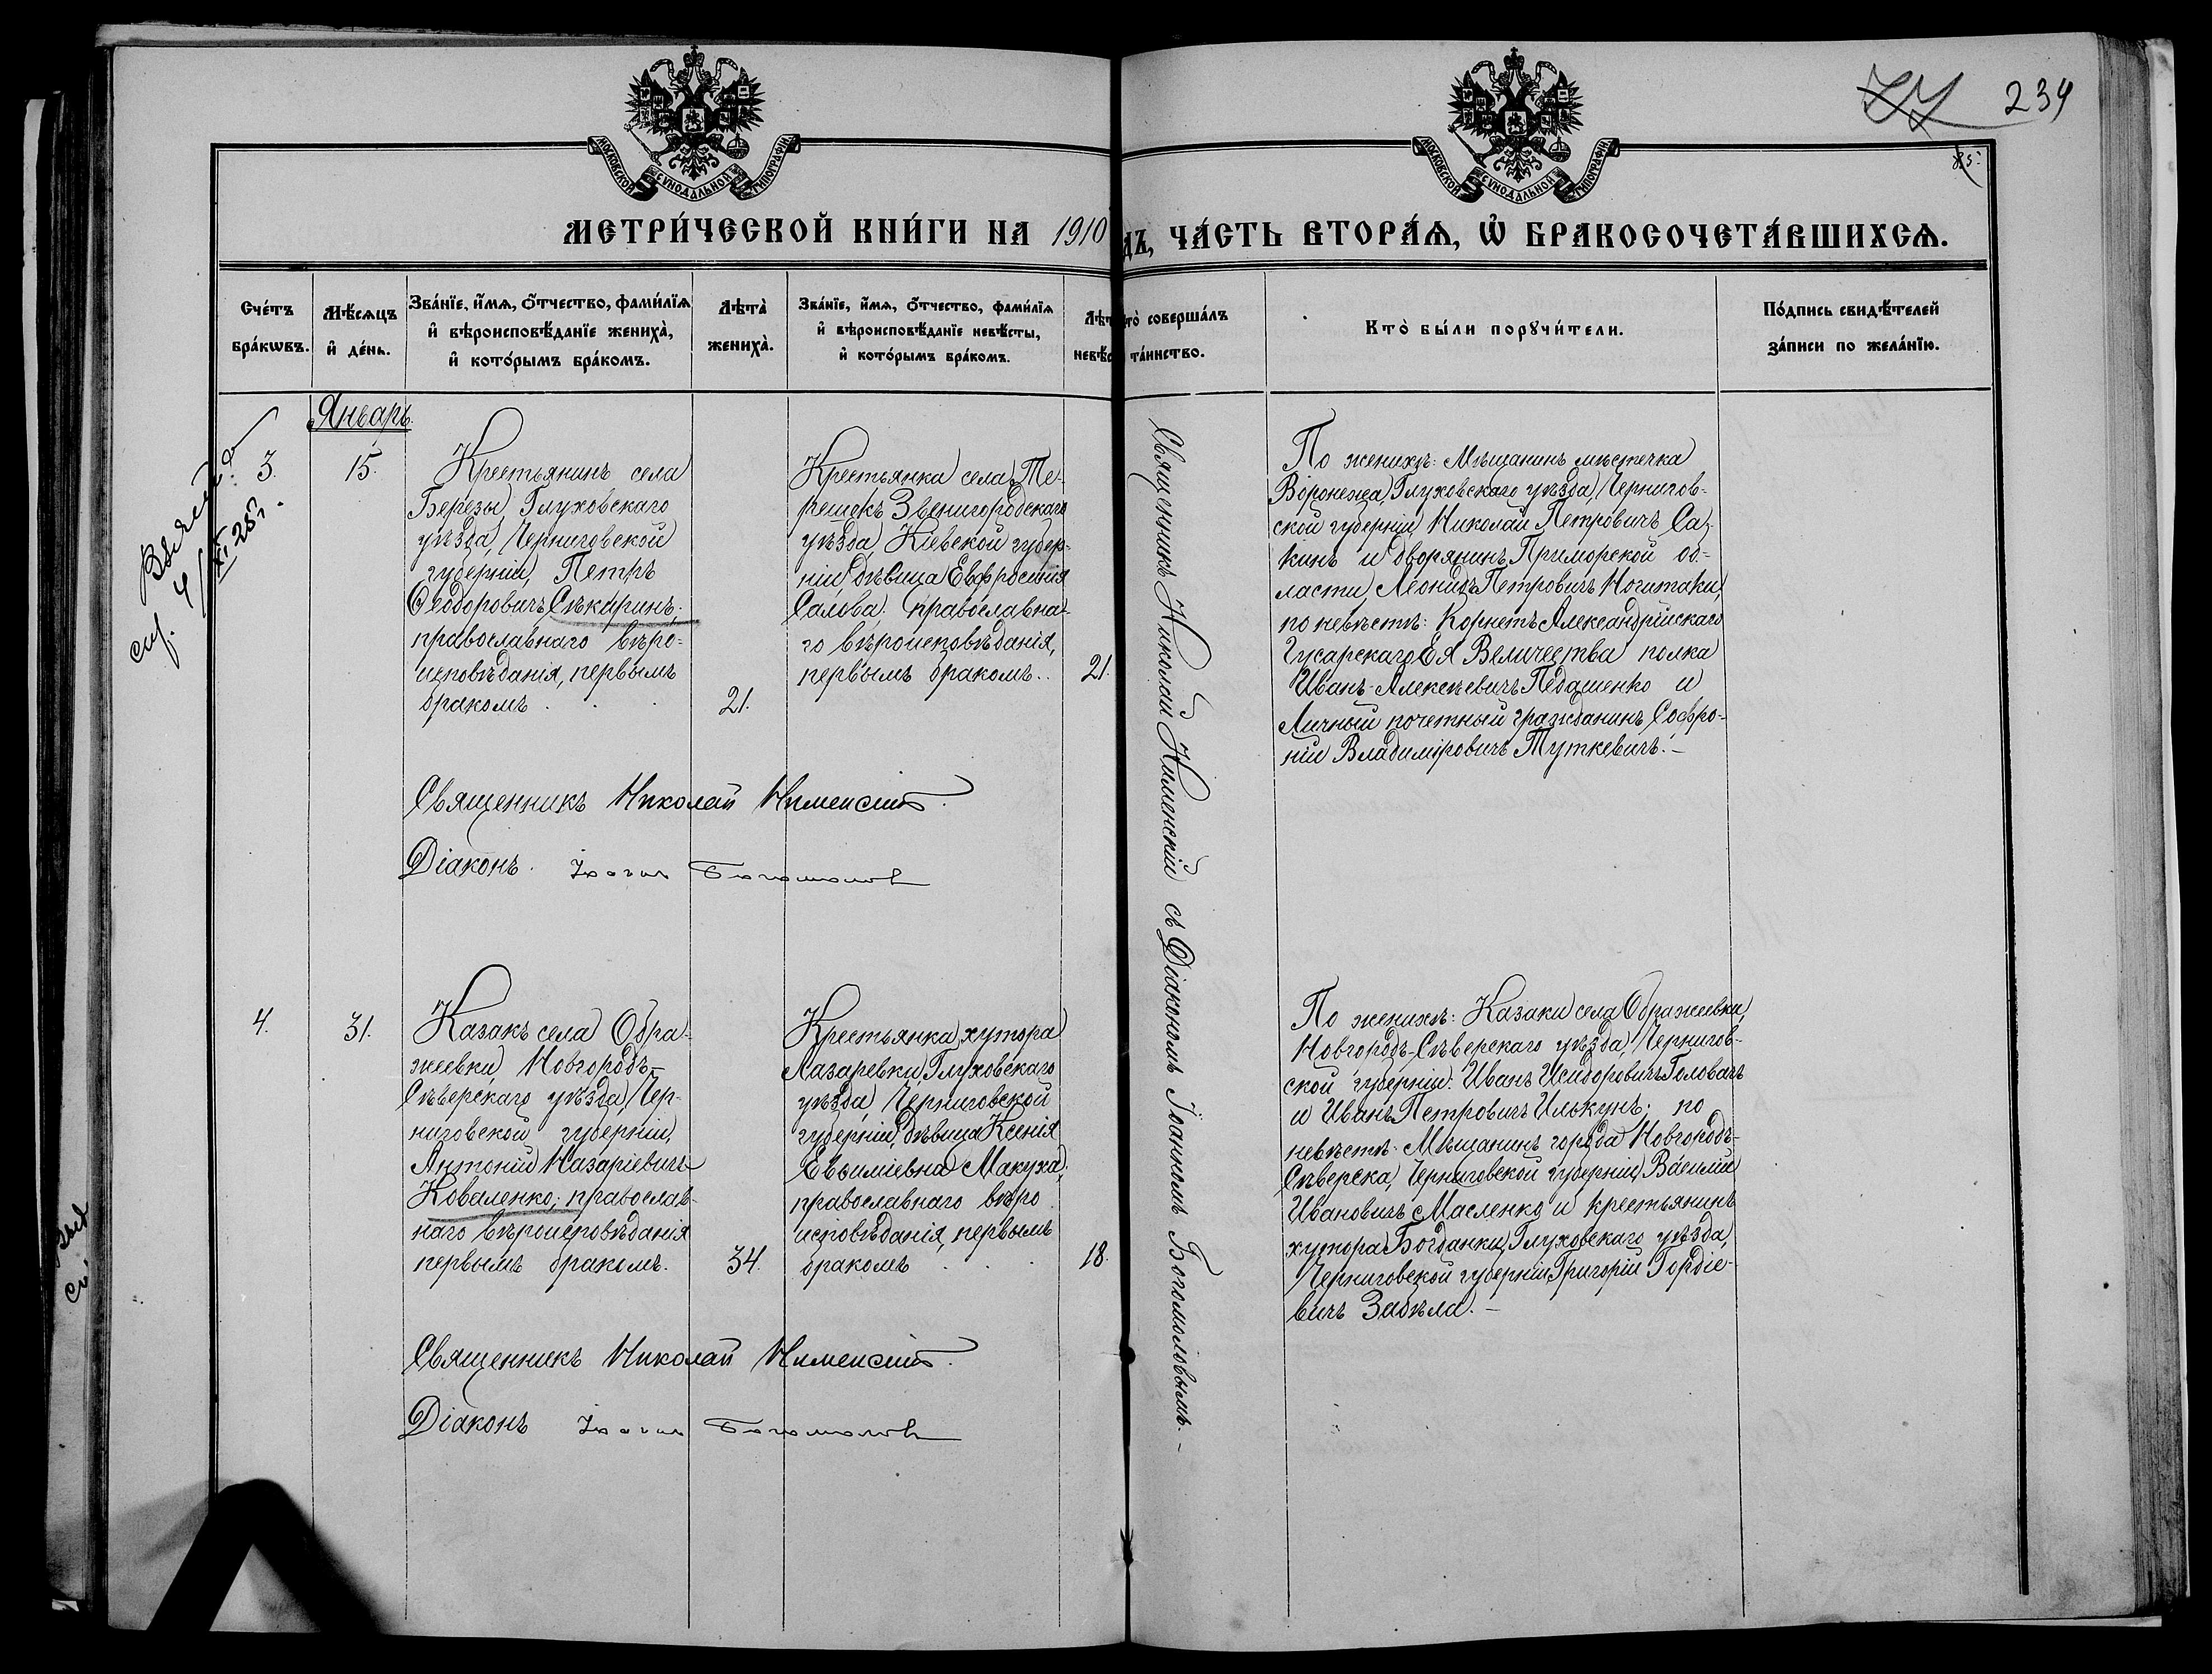 234
МОСКОВСКОЙ СѴНОДАЛЬНОЙ ТИПОГРАФІИ
МОСКОВСКОЙ СѴНОДАЛЬНОЙ ТИПОГРАФІИ
МЕТРИ́ЧЕСКОЙ КНИ́ГИ НА 1910
ДЪ, ЧА́СТЬ ВТОРА́Ѧ, Ѡ БРАКОСОЧЕТА́ВШИХСѦ.
Сче́тъ бра́кѡвъ.
Мѣ́сѧцъ и҆ де́нь.
Зва́нїе, и҆́мѧ, ѻ҆́тчество, фами́лїѧ
и҆ вѣроисповѣ́данїе жениха̀,
и҆ кото́рымъ бра́комъ.
Лѣта̀ жениха̀.
Зва́нїе, и҆́мѧ, ѻ҆́тчество, фами́лїѧ
и҆ вѣроисповѣ́данїе невѣ́сты,
и҆ кото́рымъ бра́комъ.
Лѣт
невѣс
то̀ соверша́лъ
та́инство.
Кто̀ бы́ли порꙋчи́тели.
По́дпись свидѣ́телей
за́писи по жела́нїю.
Январь.
3.
15.
Крестьянинъ села
Березы, Глуховскаго
уѣзда, Черниговской
губерніи, Петръ
Ѳеодоровичъ Сѣкиринъ,
православнаго вѣро=
исповѣданія, первымъ
бракомъ . . .
21.
Крестьянка села Те-
решекъ Звенигородскаго
уѣзда, Кіевской губер=
ніи, дѣвица Евфросинія
Салова, православна-
го вѣроисповѣданія,
первымъ бракомъ..
21.
Священникъ Николай Нименскій съ Діакономъ Іоанномъ Богомоловымъ.–
По женихѣ: Мѣщанинъ мѣстечка
Воронежа, Глуховскаго уѣзда, Чернигов-
ской губерніи, Николай Петровичъ Са-
кинъ и дворянинъ Приморской об=
ласти, Леонидъ Петровичъ Ногитаки,
по невѣстѣ: Корнетъ Александрійскаго
Гусарскаго Ея Величества полка
Иванъ Алексѣевичъ Педашенко и
Личный почетный гражданинъ Софро-
ній Владиміровичъ Туткевичъ.–
Священникъ Николай Нименскій.
Діаконъ. Іоаннъ Богомоловъ
4.
31.
Казакъ села Обра-
жеевки, Новгородъ-
Сѣверскаго уѣзда, Чер-
ниговской губерніи,
Антоній Назаріевичъ
Коваленко, православ-
наго вѣроисповѣданія
первымъ бракомъ.
34.
Крестьянка хутора
Лазаревки, Глуховскаго
уѣзда, Черниговской
губерніи, дѣвица Ксенія
Евфиміевна Макуха,
православнаго вѣро
исповѣданія, первымъ
бракомъ . . .
18.
По женихѣ: Казаки села Ображеевки,
Новгородъ-Сѣверскаго уѣзда, Чернигов-
ской губерніи: Иванъ Исидоровичъ Головачъ
и Иванъ Петровичъ Илькунъ; по
невѣстѣ: Мѣщанинъ города Новгородъ-
Сѣверска, Черниговской губерніи, Василій
Ивановичъ Масленко и крестьянинъ
хутора Богданки, Глуховскаго уѣзда,
Черниговской губерніи Григорій Гордіе-
вичъ Забѣла.–
Священникъ Николай Нименскій.
Діаконъ Іоаннъ Богомоловъ